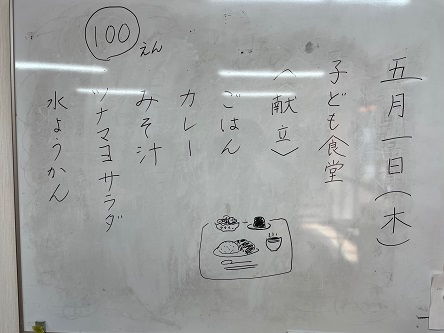 五月一日(木)
子ども食堂
〈献立〉
ごはん
カレー
みそ汁
ツナマヨサラダ
水ようかん
100えん